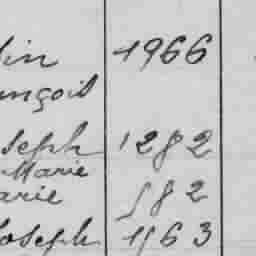 lin 1966
ançois
oseph 1282
Marie
arie 582
Joseph 1563